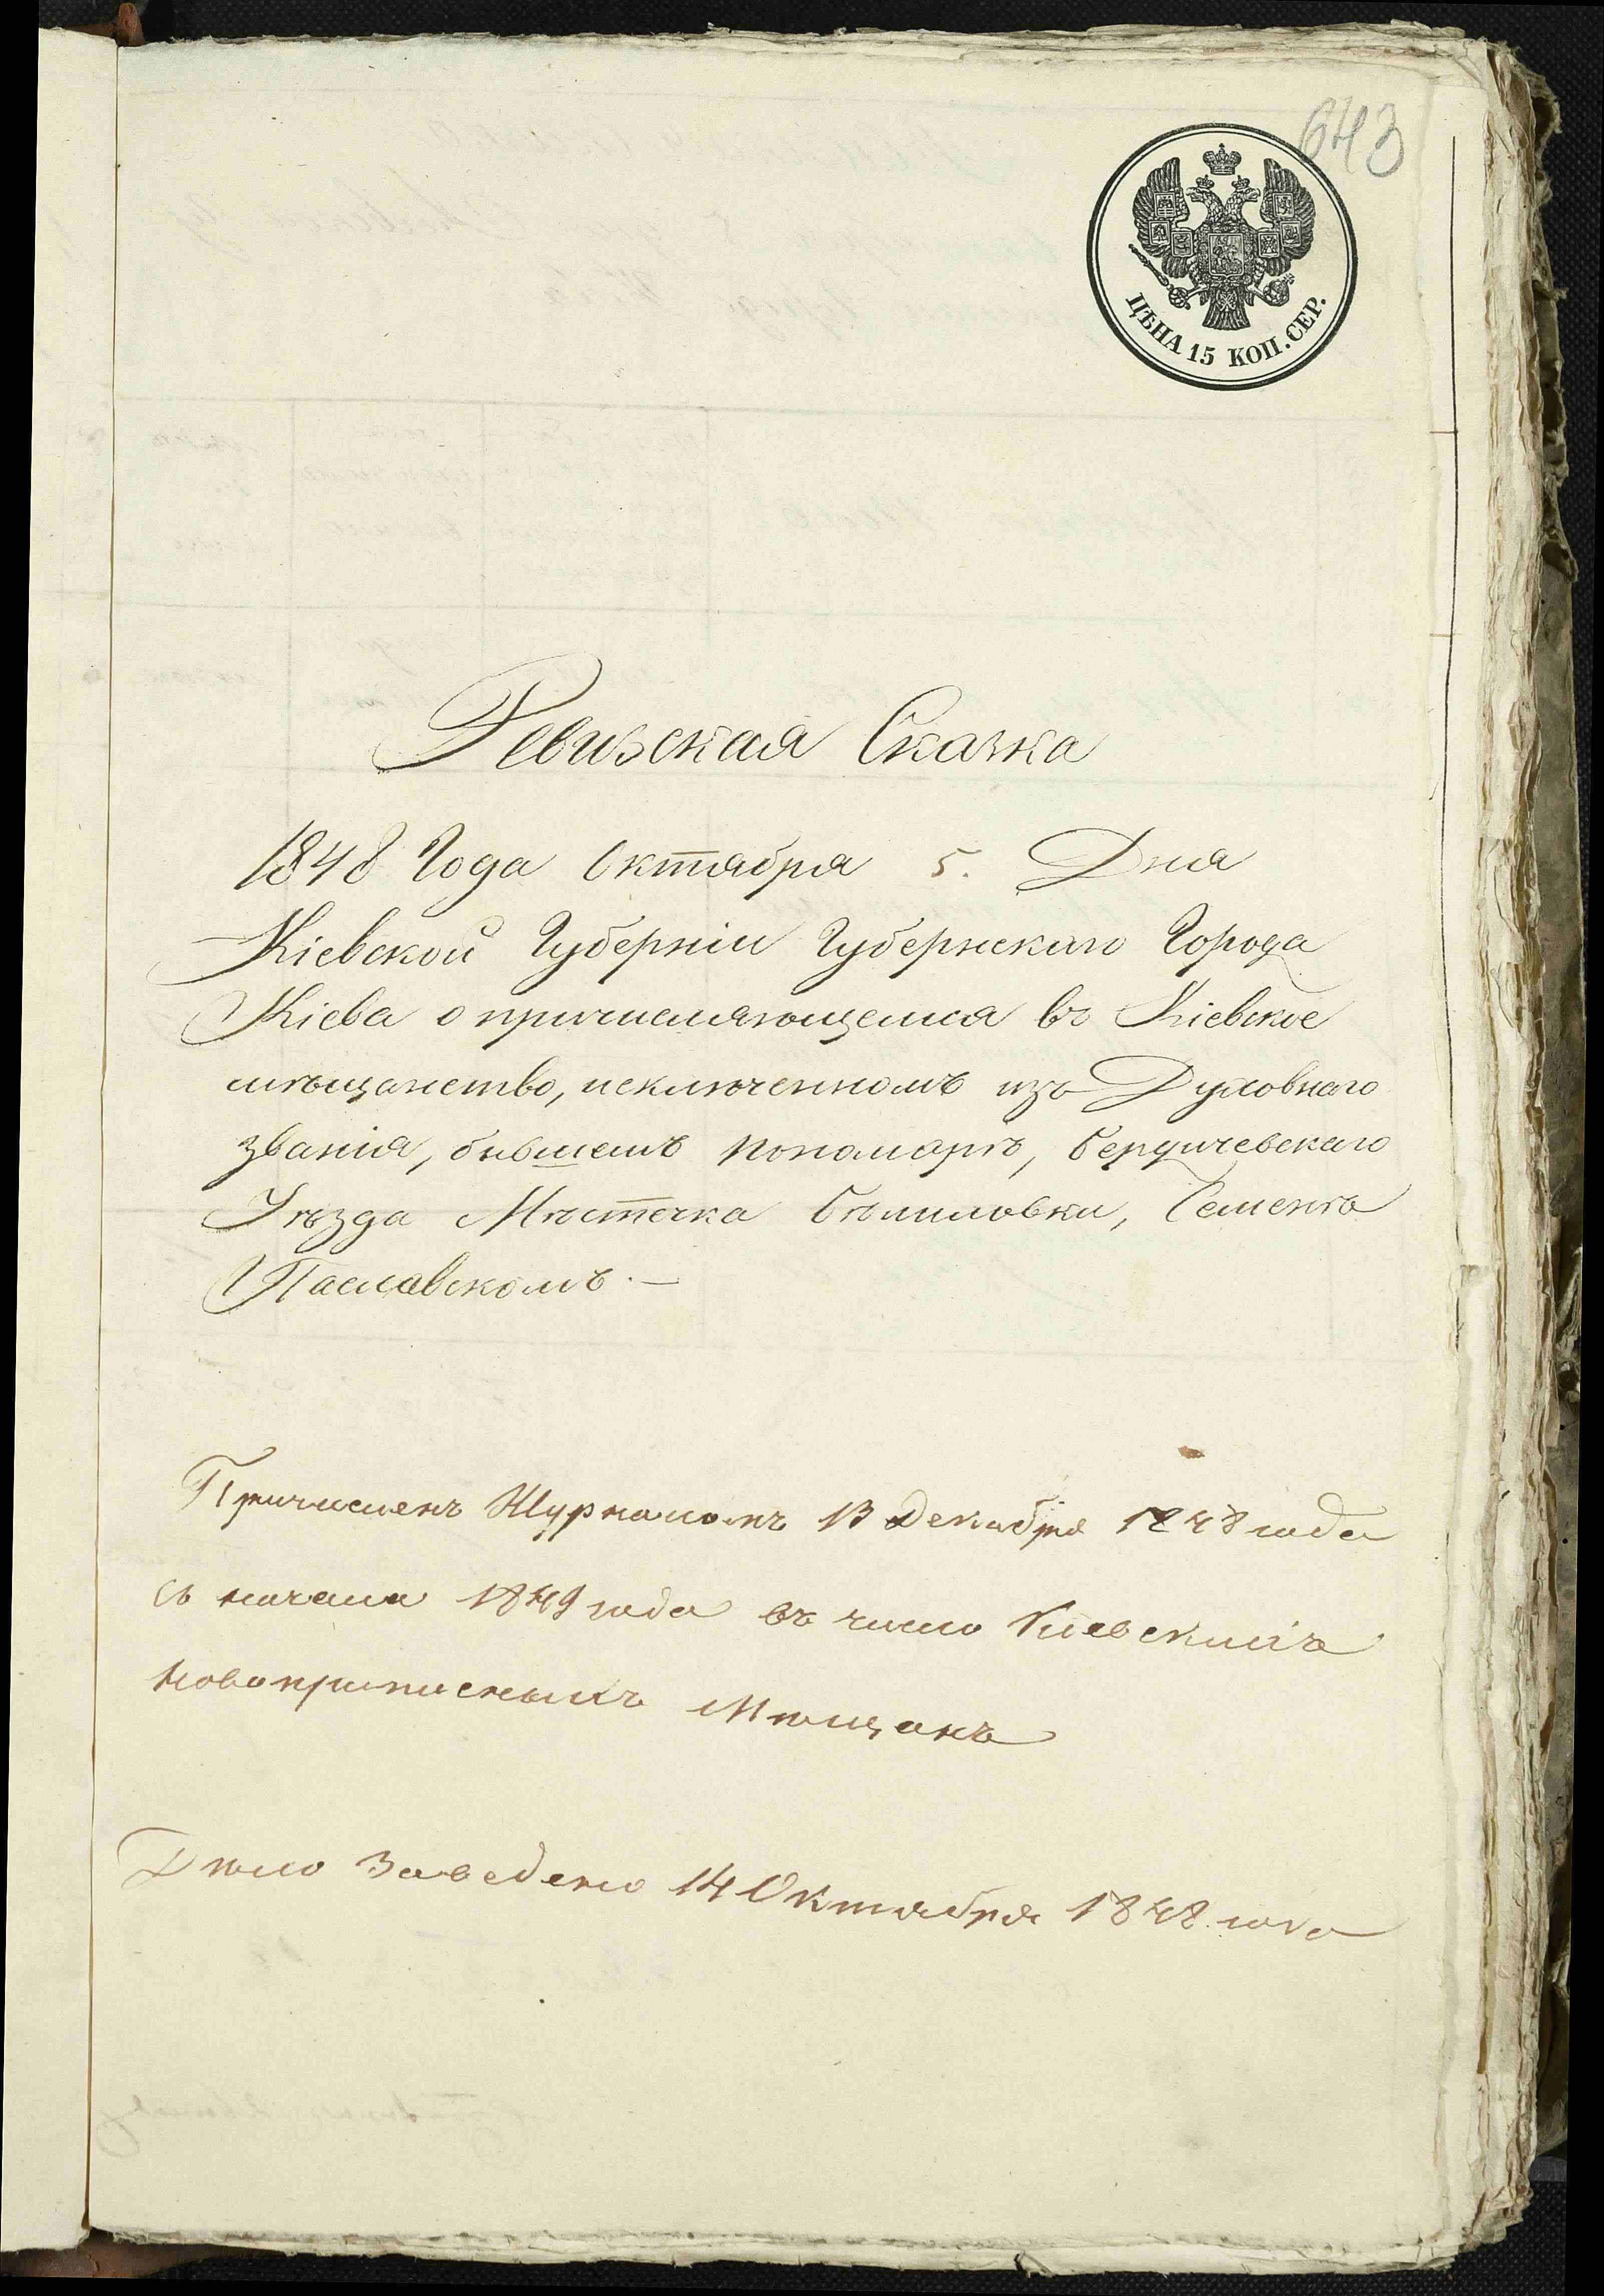 643
ЦѢНА 15 КОП. СЕР.
Ревизская Сказка
1848 Года Октября 5. Дня
Кіевской Губерніи Губернскаго Города
Кіева о причисляющемся въ Кіевское
мѣщанство, исключенномъ изъ Духовнаго
званія, бывшемъ пономарѣ, Бердичевскаго
Уѣзда Мѣстечка Бѣлиловки, Семенѣ
Паславскомъ.—
Причисленъ Журналомъ 13 Декабря 1848 года
съ начала 1849 года въ число Кіевскихъ
новоприписныхъ Мѣщанъ
Дѣло Заведено 14 Октября 1848 года